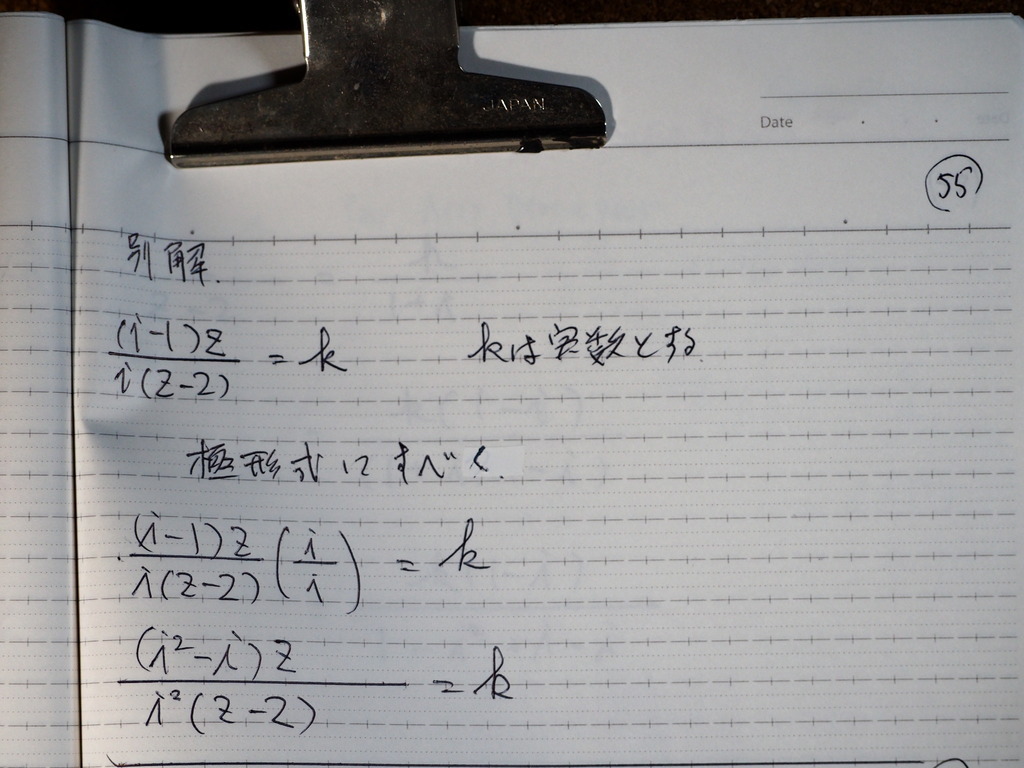 JAPAN
Date
55
別解.
(i-1)z / i(z-2) = k kは実数とする
極形式にすべく.
(i-1)z / i(z-2) (i/i) = k
(i²-i)z / i²(z-2) = k